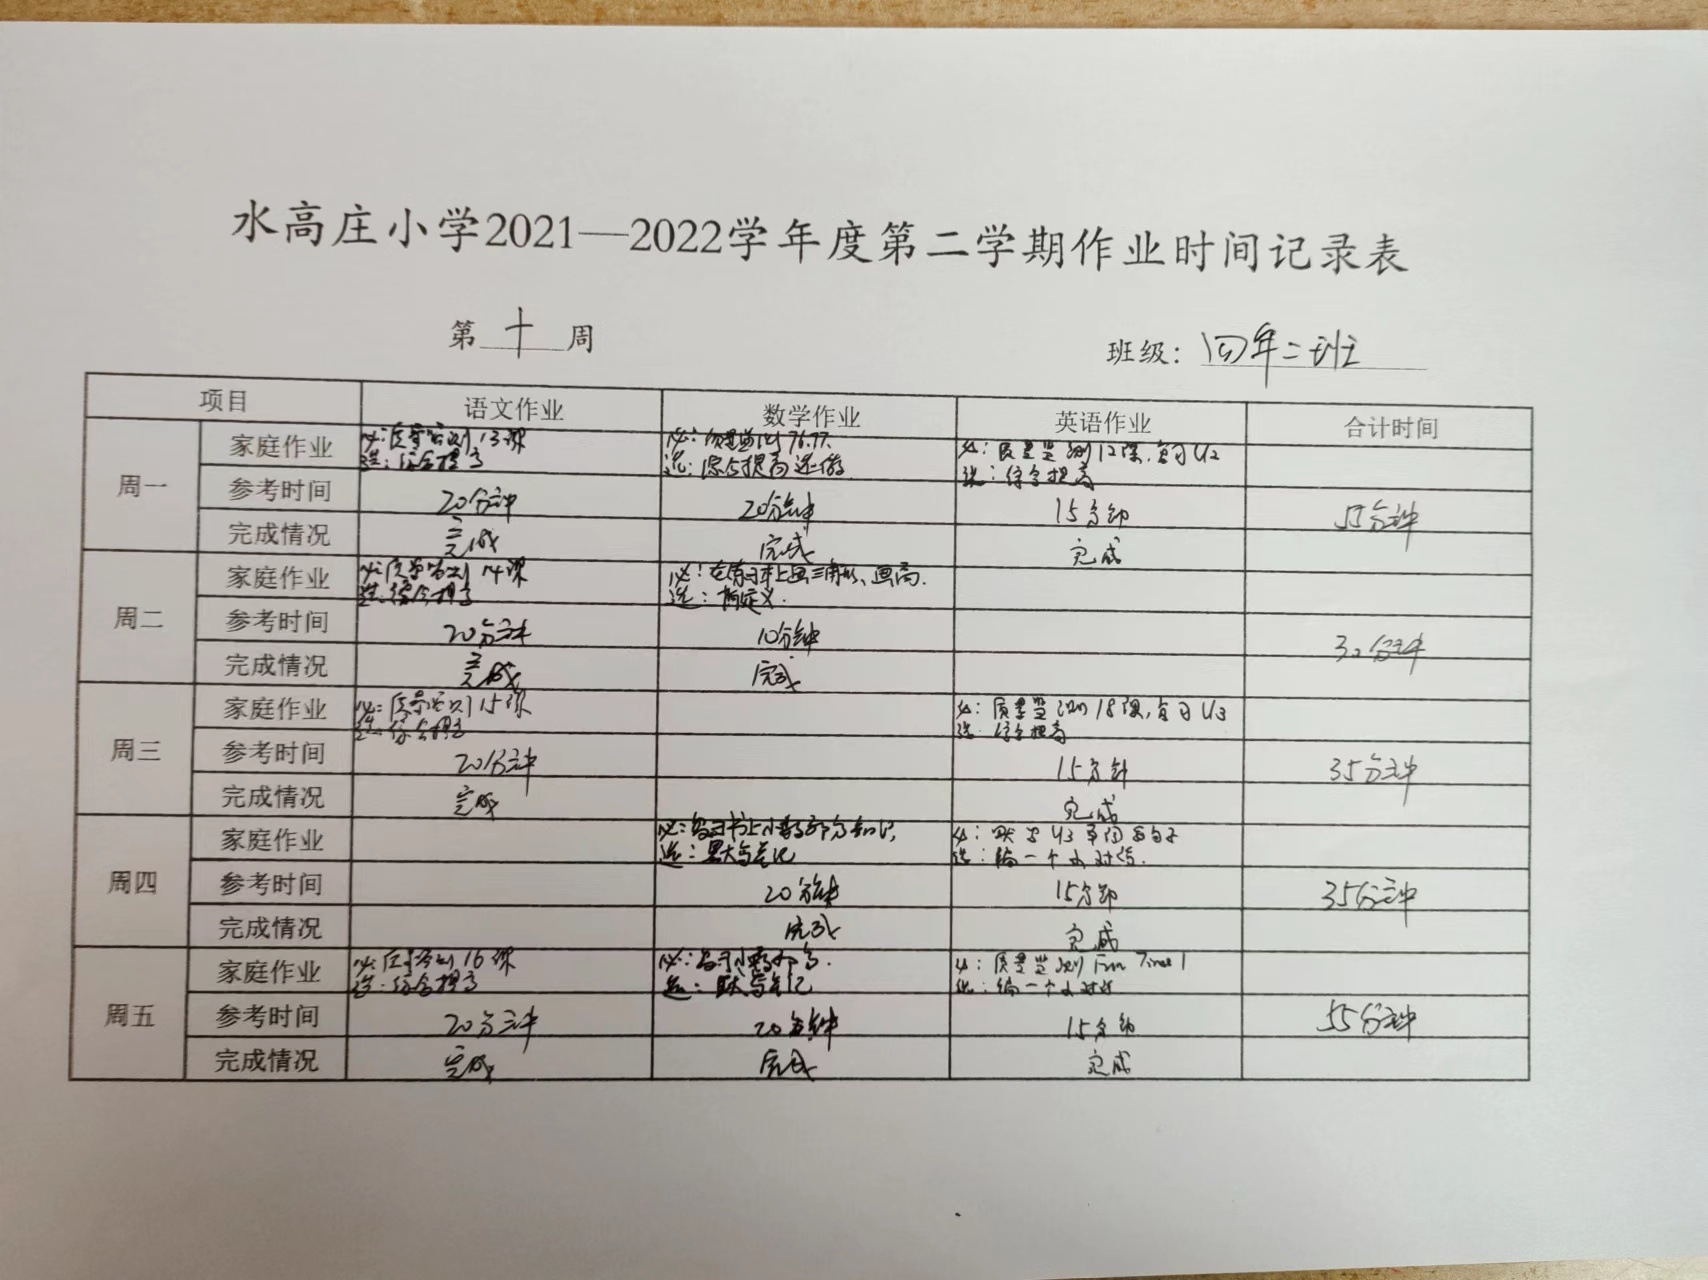 水高庄小学2021—2022学年度第二学期作业时间记录表
第 十 周
班级: 四年二班
项目 语文作业 数学作业 英语作业 合计时间
周一
家庭作业 必:质量监测13课 必:质量监测76.77. 必:质量监测12课,复习U2
选:综合提高 选:综合提高选做 选:综合提高
参考时间 20分钟 20分钟 15分钟 55分钟
完成情况 完成 完成 完成
周二
家庭作业 必:质量监测14课 必:在练习本上画三角形、画高.
选:综合提高 选:背定义.
参考时间 20分钟 10分钟 30分钟
完成情况 完成 完成
周三
家庭作业 必:质量监测15课 必:质量监测18课,复习U3
选:综合提高 选:综合提高
参考时间 20分钟 15分钟 35分钟
完成情况 完成 完成
周四
家庭作业 必:复习书上小数部分知识, 必:默写U3单词
选:默写笔记 选:编一个小对话.
参考时间 20分钟 15分钟 35分钟
完成情况 完成 完成
周五
家庭作业 必:质量监测16课 必:复习小数部分. 必:质量监测Fun Time 1
选:综合提高 选:默写笔记 选:编一个小对话
参考时间 20分钟 20分钟 15分钟 55分钟
完成情况 完成 完成 完成